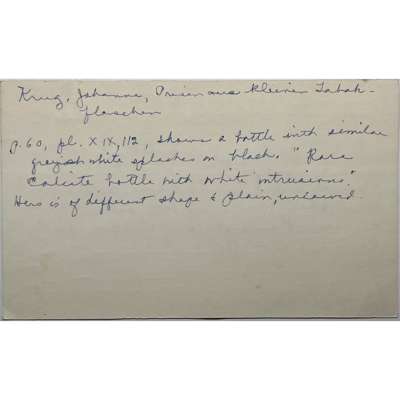 Krug, Johanna, Orien aus kleinen Tabak-
flaschen
p. 60, pl. XIX, 112, shows a bottle with similar
greyish white splashes on black. "Rare
Calcite bottle with white intrusions."
Hers is of different shape & plain, uncarved.